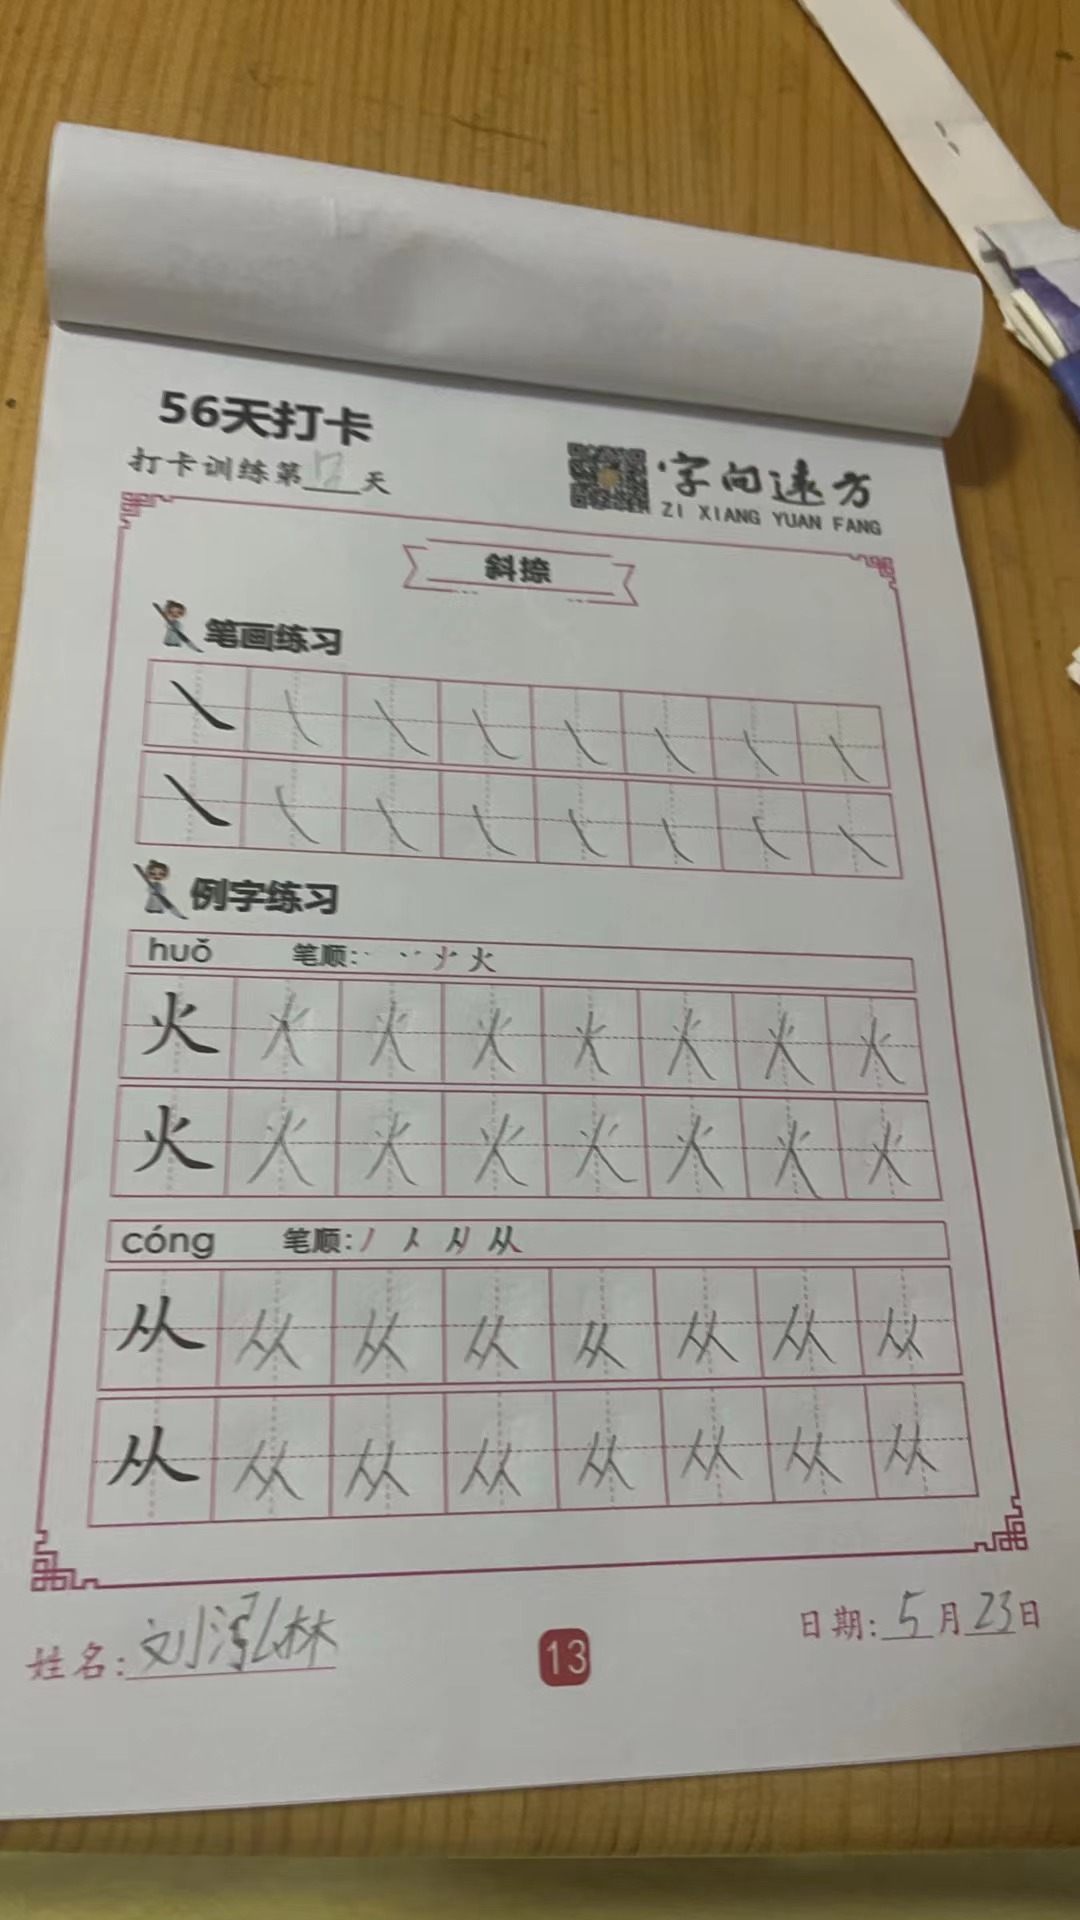 56天打卡
打卡训练第12天
字向远方
ZI XIANG YUAN FANG
斜捺
笔画练习
㇏ ㇏ ㇏ ㇏ ㇏ ㇏ ㇏ ㇏
㇏ ㇏ ㇏ ㇏ ㇏ ㇏ ㇏ ㇏
例字练习
huǒ 笔顺: 火
火 火 火 火 火 火 火 火
火 火 火 火 火 火 火 火
cóng 笔顺: 丿 人 从
从 从 从 从 从 从 从 从
从 从 从 从 从 从 从 从
姓名: 刘泓林
13
日期: 5月23日